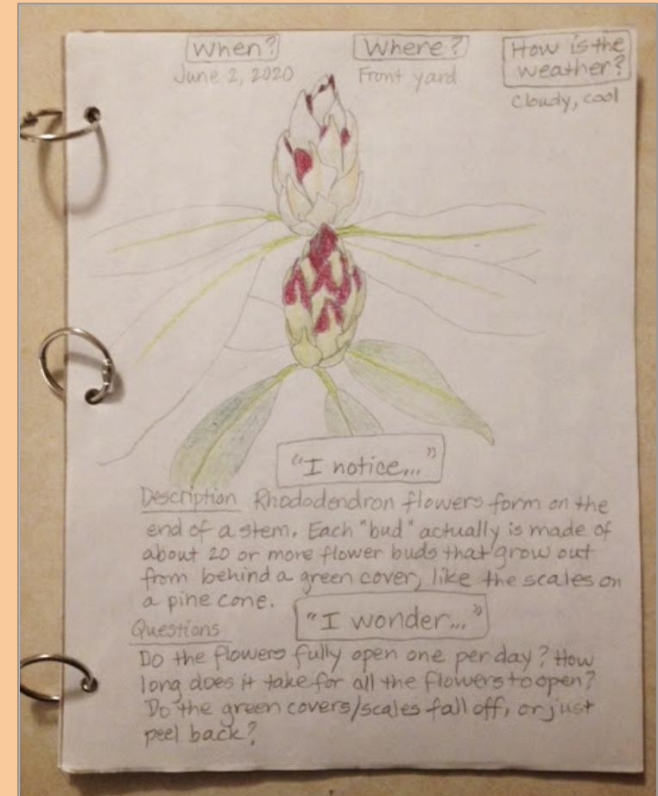 When?
Where?
How is the
weather?
June 2, 2020
Front yard
Cloudy, cool
"I notice..."
Description Rhododendron flowers form on the
end of a stem. Each "bud" actually is made of
about 20 or more flower buds that grow out
from behind a green cover, like the scales on
a pine cone.
"I wonder..."
Questions
Do the flowers fully open one per day? How
long does it take for all the flowers to open?
Do the green covers/scales fall off, or just
peel back?